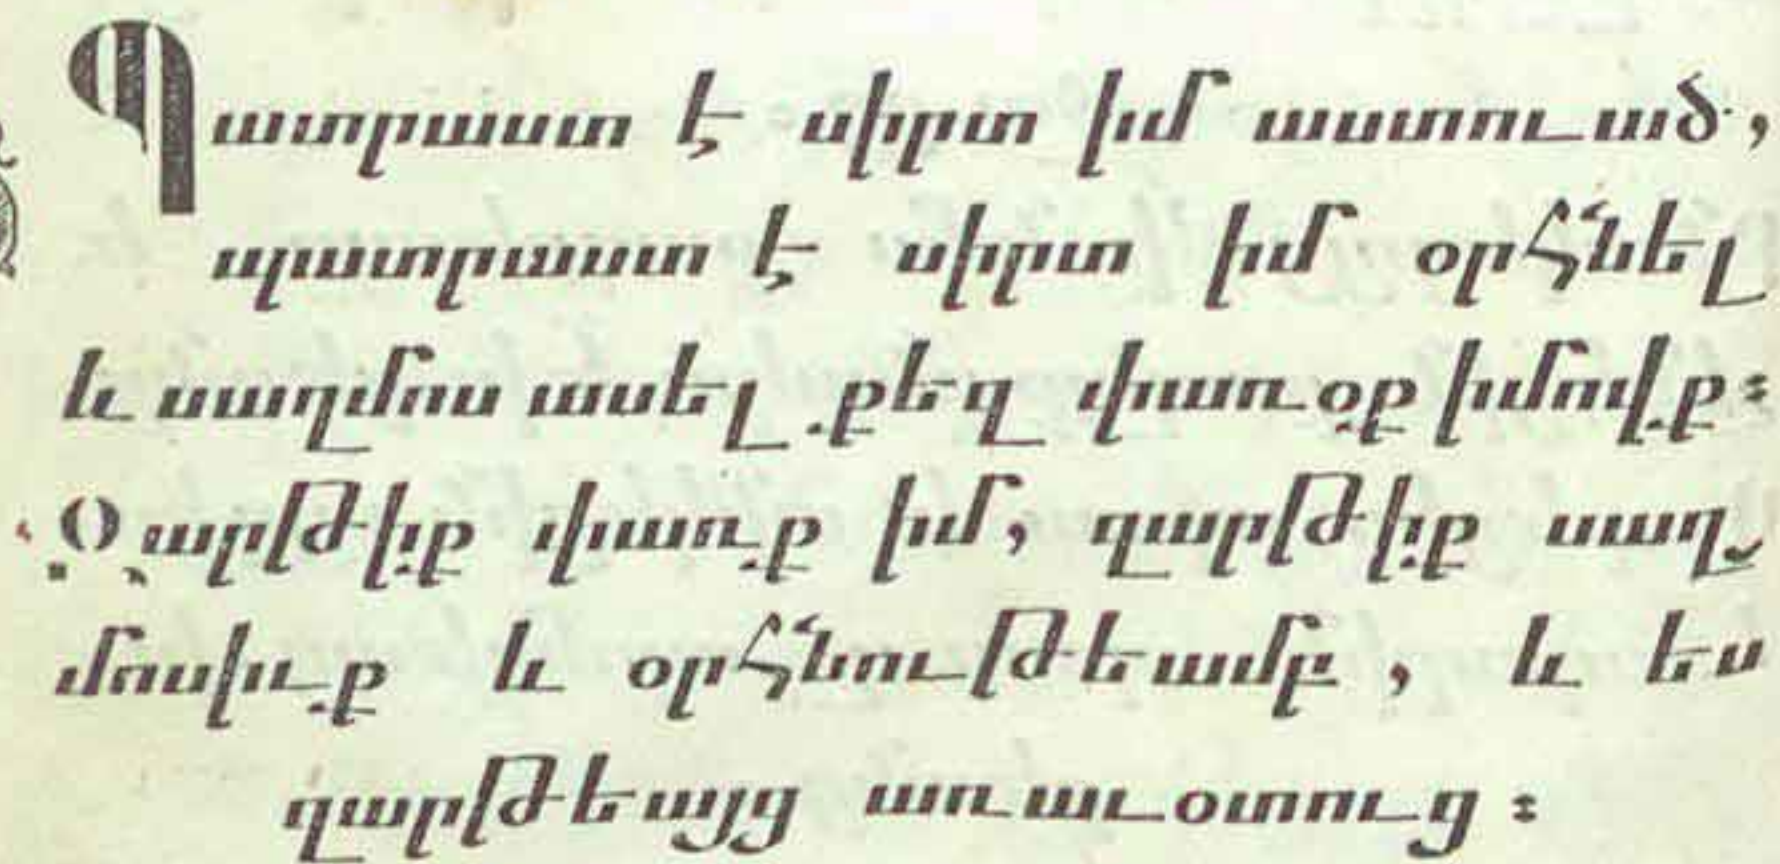 Պատրաստ է սիրտ իմ աստուած,
պատրաստ է սիրտ իմ օրհնել
և սաղմոս ասել քեզ փառօք իմովք։
Զարթիք փառք իմ, զարթիք սաղ֊
մոսիւք և օրհնութեամբ, և ես
զարթեայց առաւօտուց։